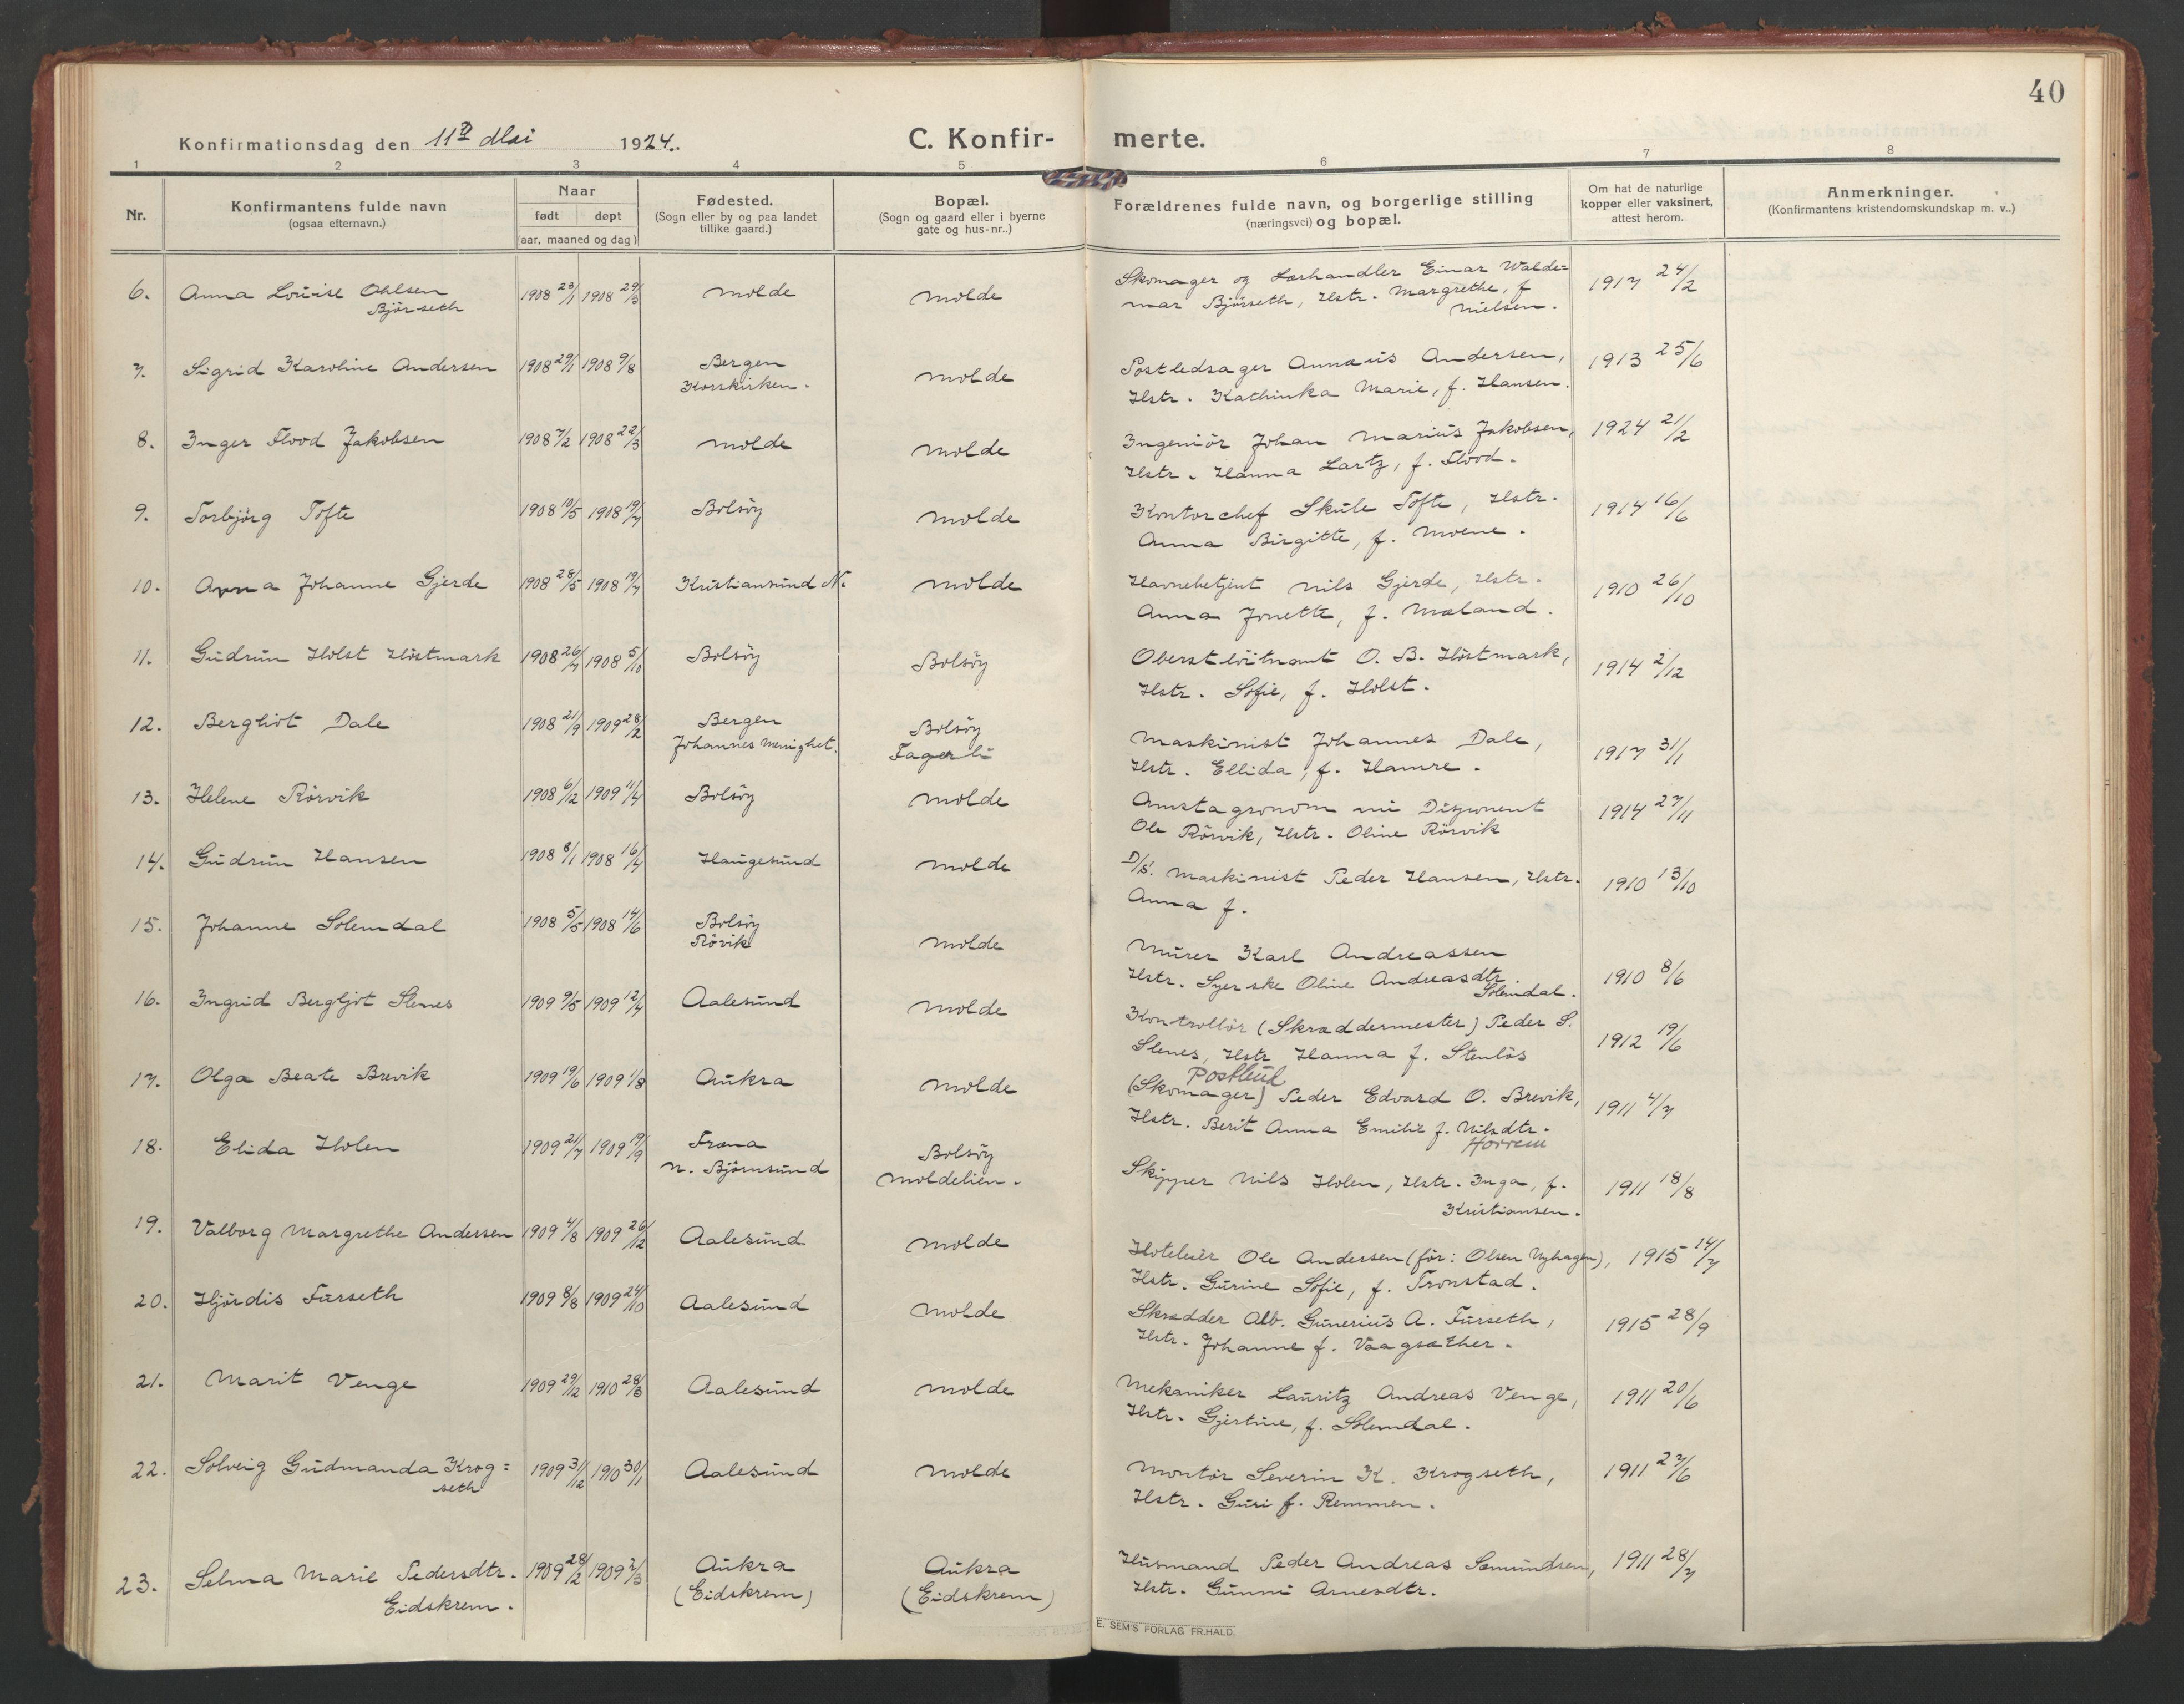 40
Konfirmationsdag den 11te Mai 1924.
C. Konfir-
merte.
1 2 3 4 5 6 7 8
Nr.
Konfirmantens fulde navn
(ogsaa efternavn.)
Naar
født døpt
(aar, maaned og dag)
Fødested.
(Sogn eller by og paa landet
tillike gaard.)
Bopæl.
(Sogn og gaard eller i byerne
gate og hus-nr..)
Forældrenes fulde navn, og borgerlige stilling
(næringsvei) og bopæl.
Om hat de naturlige
kopper eller vaksinert,
attest herom.
Anmerkninger.
(Konfirmantens kristendomskundskap m. v..)
6. Anna Louise Ohlsen 1908 23/1 1908 29/3 Molde Molde Skomager og Lærhandler Einar Walde= 1917 24/2
Bjørseth mar Bjørseth, Hstr. Margrethe, f
Nielsen.
7. Sigrid Karoline Andersen 1908 29/1 1908 9/8 Bergen Molde Postledsager Annæus Andersen, 1913 25/6
Korskirken. Hstr. Kathinka Marie, f. Hansen.
8. Inger Flood Jakobsen 1908 7/2 1908 22/3 Molde Molde Ingeniör Johan Marius Jakobsen, 1924 21/2
Hstr. Hanna Lartz, f. Flood.
9. Torbjörg Tofte 1908 10/5 1908 19/7 Bolsöy Molde Kontorchef Skule Tofte, Hstr. 1914 16/6
Anna Birgitte, f. Moene.
10. Anna Johanne Gjerde 1908 28/5 1908 19/7 Kristiansund N. Molde Havnebetjent Nils Gjerde, Hstr. 1910 26/10
Anna Jonette, f. Mæland.
11. Gudrun Holst Höstmark 1908 26/7 1908 5/10 Bolsöy Bolsöy Oberstlöitnant O. B. Höstmark, 1914 2/12
Hstr. Sofie, f. Holst.
12. Bergliot Dale 1908 21/9 1909 28/2 Bergen Bolsöy Maskinist Johannes Dale, 1917 31/1
Johannes Menighet. Fagerli Hstr. Ellida, f. Hamre.
13. Helene Rörvik 1908 6/12 1909 11/4 Bolsöy Molde Amstagronom nu Disponent 1914 27/11
Ole Rörvik, Hstr. Oline Rörvik
14. Gudrun Hansen 1908 8/1 1908 16/4 Haugesund Molde D/S. Maskinist Peder Hansen, Hstr. 1910 13/10
Anna f.
15. Johanne Solemdal 1908 5/5 1908 14/6 Bolsöy Molde Murer Karl Andreassen 1910 8/6
Rövik Hstr. Syerske Oline Andreasdtr.
Solemdal.
16. Ingrid Bergljot Slenes 1909 9/5 1909 12/7 Aalesund Molde Kontrollör (Skræddermester) Peder S. 1912 19/6
Slenes, Hstr Hanna f. Stenlös
17. Olga Beate Brevik 1909 19/6 1909 1/8 Aukra Molde Postbud
(Skomager) Peder Edvard O. Brevik, 1911 4/7
Hstr. Berit Anna Emilie f. Nilsdtr.
Horrem
18. Elida Holen 1909 21/7 1909 19/9 Fræna Bolsöy Skipper Nils Holen, Hstr. Inga, f. 1911 18/8
N. Björnsund Moldelien. Kristiansen.
19. Valborg Margrethe Andersen 1909 4/8 1909 26/12 Aalesund Molde Hoteleier Ole Andersen (för: Olsen Nyhagen), 1915 14/7
Hstr. Gurine Sofie, f. Tronstad.
20. Hjördis Furseth 1909 8/8 1909 24/10 Aalesund Molde Skrædder Alb. Gunerius A. Furseth, 1915 28/9
Hstr. Johanne f. Vaagsæther.
21. Marit Venge 1909 29/12 1910 28/3 Aalesund Molde Mekaniker Lauritz Andreas Venge, 1911 20/6
Hstr. Gjertine, f. Solemdal.
22. Solveig Gudmanda Krog= 1909 31/12 1910 30/1 Aalesund Molde Montör Severin K. Krogseth, 1911 27/6
seth Hstr. Guri f. Remmen.
23. Selma Marie Pedersdtr. 1909 28/2 1909 2/3 Aukra Aukra Husmand Peder Andreas Semundsen, 1911 28/7
Eidskrem. (Eidskrem) (Eidskrem) Hstr. Gunni Arnesdtr.
E. SEM'S FORLAG FR.HALD.